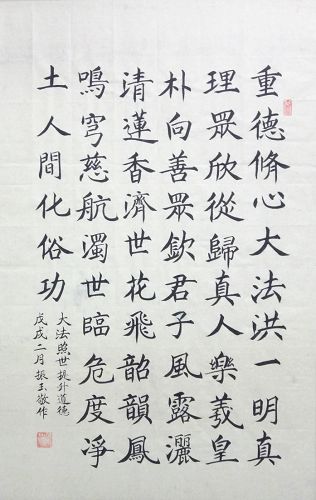 重德脩心大法洪一明真
理眾欣從歸真人樂羲皇
朴向善眾欽君子風露灑
清蓮香濟世花飛韶韻鳳
鳴穹慈航濁世臨危度淨
土人間化俗功
大法照世提升道德
戊戌二月振玉敬作